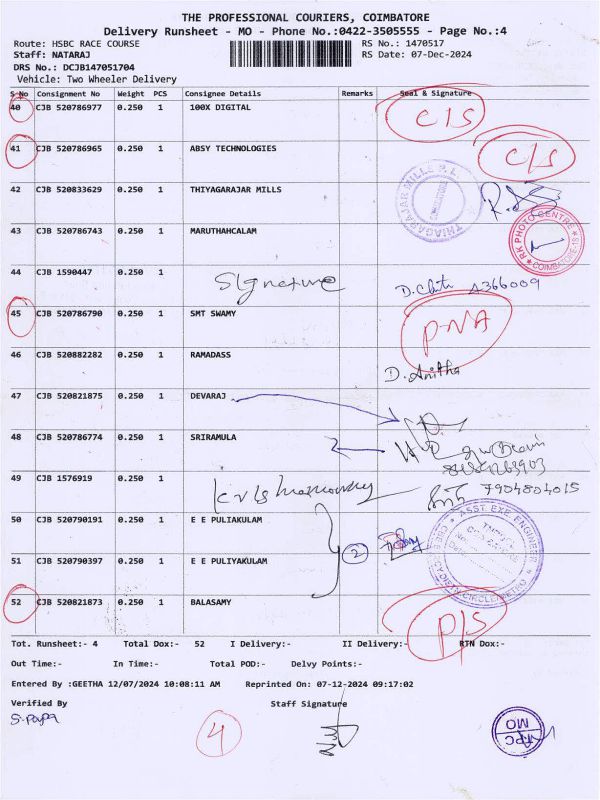 THE PROFESSIONAL COURIERS, COIMBATORE
Delivery Runsheet - MO - Phone No.:0422-3505555 - Page No.:4
Route: HSBC RACE COURSE RS No.: 1470517
Staff: NATARAJ RS Date: 07-Dec-2024
DRS No.: DCJB147051704
Vehicle: Two Wheeler Delivery
S No Consignment No Weight PCS Consignee Details Remarks Seal & Signature
40 CJB 520786977 0.250 1 100X DIGITAL C/S
41 CJB 520786965 0.250 1 ABSY TECHNOLOGIES C/S
42 CJB 520833629 0.250 1 THIYAGARAJAR MILLS
THIAGARAJAR MILLS P. L.
43 CJB 520786743 0.250 1 MARUTHAHCALAM
RK PHOTO CENTRE
COIMBATORE-18
44 CJB 1590447 0.250 1 Signature
45 CJB 520786790 0.250 1 SMT SWAMY P-NA
46 CJB 520882282 0.250 1 RAMADASS D. Anitha
47 CJB 520821875 0.250 1 DEVARAJ
48 CJB 520786774 0.250 1 SRIRAMULA
49 CJB 1576919 0.250 1 7904804015
50 CJB 520790191 0.250 1 E E PULIAKULAM
2
ASST. EXE. ENGINEER
51 CJB 520790397 0.250 1 E E PULIYAKULAM
52 CJB 520821873 0.250 1 BALASAMY P/S
Tot. Runsheet:- 4 Total Dox:- 52 I Delivery:- II Delivery:- RTN Dox:-
Out Time:- In Time:- Total POD:- Delvy Points:-
Entered By :GEETHA 12/07/2024 10:08:11 AM Reprinted On: 07-12-2024 09:17:02
Verified By Staff Signature
4
TPC
MO